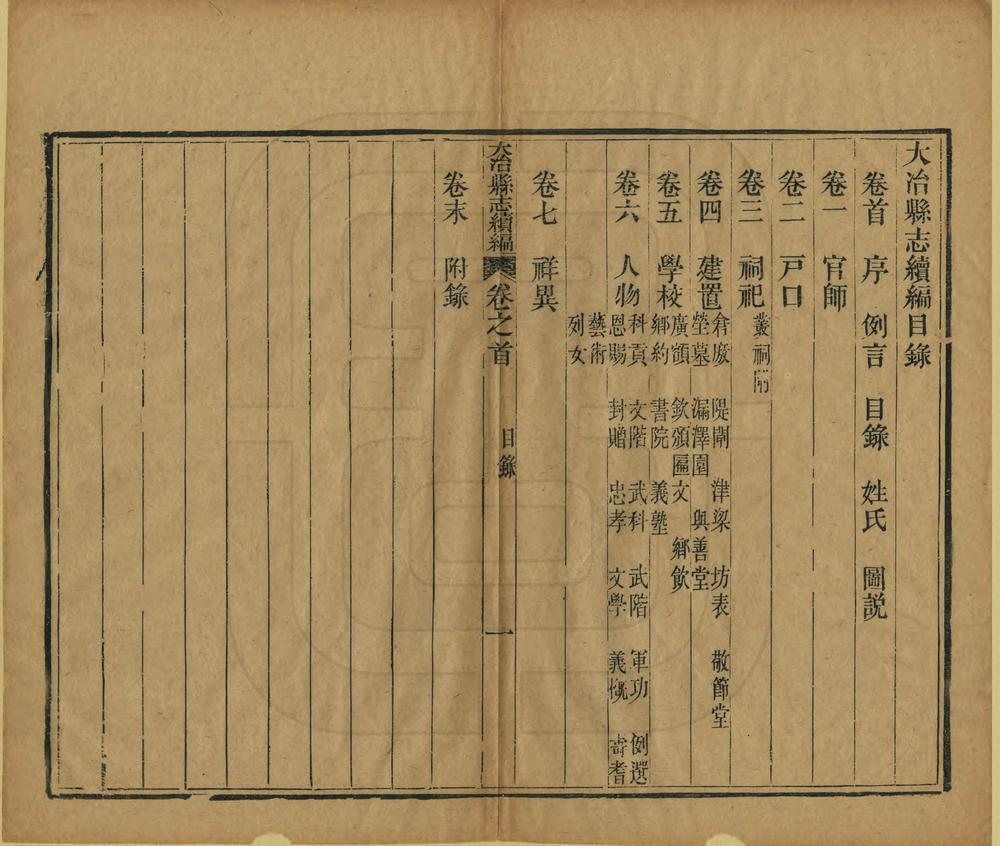 大冶縣志續編目錄
卷首 序 例言 目錄 姓氏 圖説
卷一 官師
卷二 戸口
卷三 祠祀 叢祠附
卷四 建置 倉廒 隄閘 津梁 坊表 敬節堂
塋墓 漏澤園 與善堂
卷五 學校 廣額 欽頒匾文 鄉飲
鄉約 書院 義塾
卷六 人物 科貢 文階 武科 武階 軍功 例選
恩賜 封贈 忠孝 文學 義概 耆耆
藝術
列女
卷七 祥異
大冶縣志續編 卷之首 目錄 一
卷末 附錄